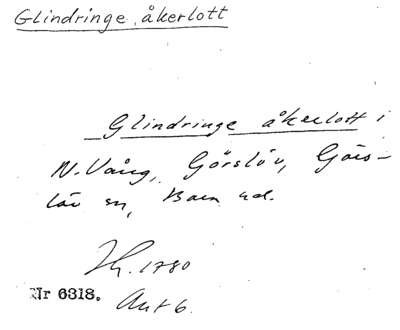 Glindringe åkerlott
Glindringe åkerlott i
N. Vång, Görslöv, Görs-
löv sn, Bara hd.
1780
Nr 6318. Akt 6.